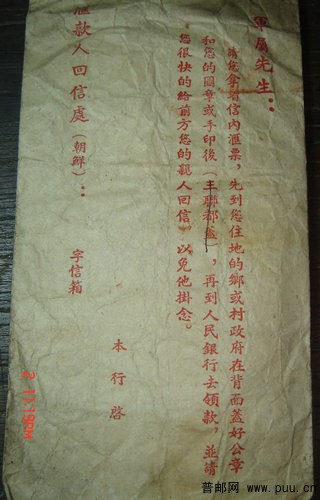 軍属先生：
請您拿着信內滙票，先到您住地的鄉或村政府在背面蓋好公章
和您的圖章或手印後（三聯都蓋），再到人民銀行去領款，並請
您很快的給前方您的親人回信。以免他掛念。
本行啓
字信箱
滙款人回信處（朝鮮）：
普邮网 www.puu.cn